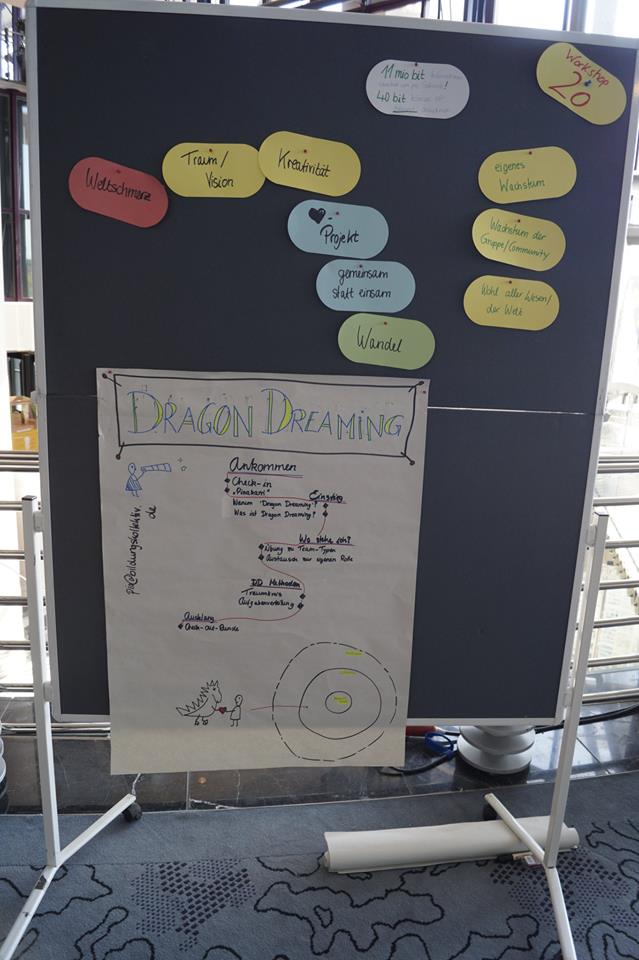 11 mio bit
40 bit
Workshop
20
Weltschmerz
Traum/
Vision
Kreativität
Projekt
gemeinsam
statt einsam
Wandel
eigenes
Wachstum
Wachstum der
Gruppe/Community
Wohl aller Wesen/
der Welt
DRAGON DREAMING
Ankommen
Check-in
"Pinakarri"
Einstieg
Warum "Dragon Dreaming"?
Was ist Dragon Dreaming?
Wo stehe ich?
Übung zu Team-Typen
Austausch zur eigenen Rolle
DD Methoden
Traumkreis
Aufgabenverteilung
Ausklang
Check-out-Runde
pia@bildungskollektiv.
de